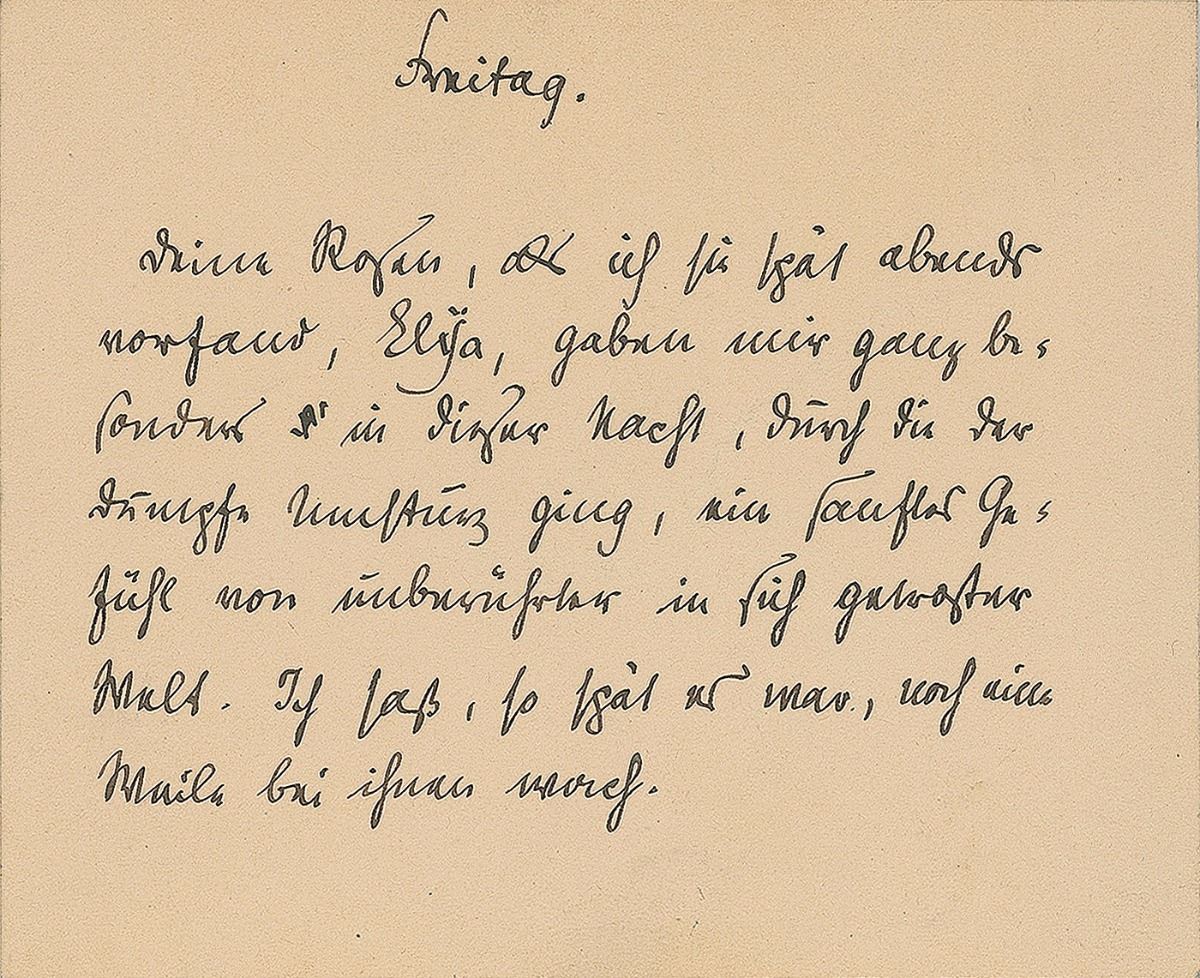 Freitag.
Deine Rosen, als ich sie spät abends
vorfand, Elya, gaben mir ganz be-
sonders in dieser Nacht, durch die der
dumpfe Umsturz ging, ein sanftes Ge-
fühl von unberührter in sich getroster
Welt. Ich saß, so spät es war, noch eine
Weile bei ihnen wach.